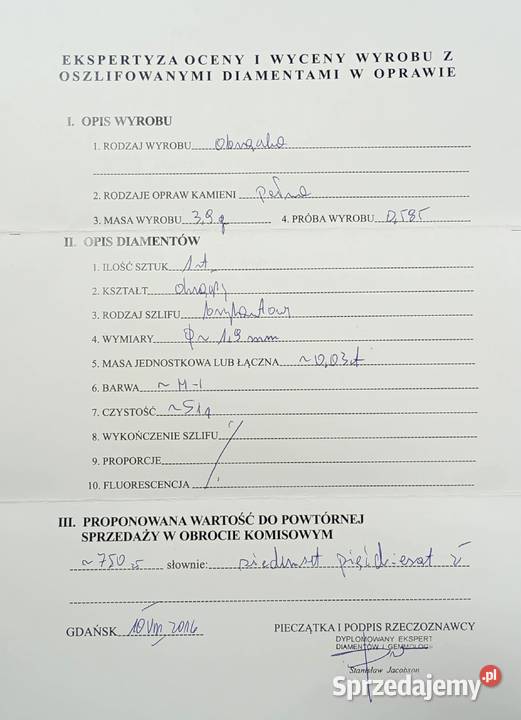 EKSPERTYZA OCENY I WYCENY WYROBU Z
OSZLIFOWANYMI DIAMENTAMI W OPRAWIE
I. OPIS WYROBU
1. RODZAJ WYROBU Obrączka
2. RODZAJE OPRAW KAMIENI pełna
3. MASA WYROBU 3,9 g 4. PRÓBA WYROBU 0,585
II. OPIS DIAMENTÓW
1. ILOŚĆ SZTUK 1 szt
2. KSZTAŁT okrągły
3. RODZAJ SZLIFU brylantowy
4. WYMIARY φ ~ 1,9 mm
5. MASA JEDNOSTKOWA LUB ŁĄCZNA ~0,03 ct
6. BARWA ~
7. CZYSTOŚĆ ~SI1
8. WYKOŃCZENIE SZLIFU
9. PROPORCJE
10. FLUORESCENCJA
III. PROPONOWANA WARTOŚĆ DO POWTÓRNEJ
SPRZEDAŻY W OBROCIE KOMISOWYM
~750 zł słownie: siedemset pięćdziesiąt zł
GDAŃSK 10 VIII 2016 PIECZĄTKA I PODPIS RZECZOZNAWCY
DYPLOMOWANY EKSPERT
DIAMENTÓW I GEMMOLOG
Stanisław Jacobson
Sprzedajemy.pl